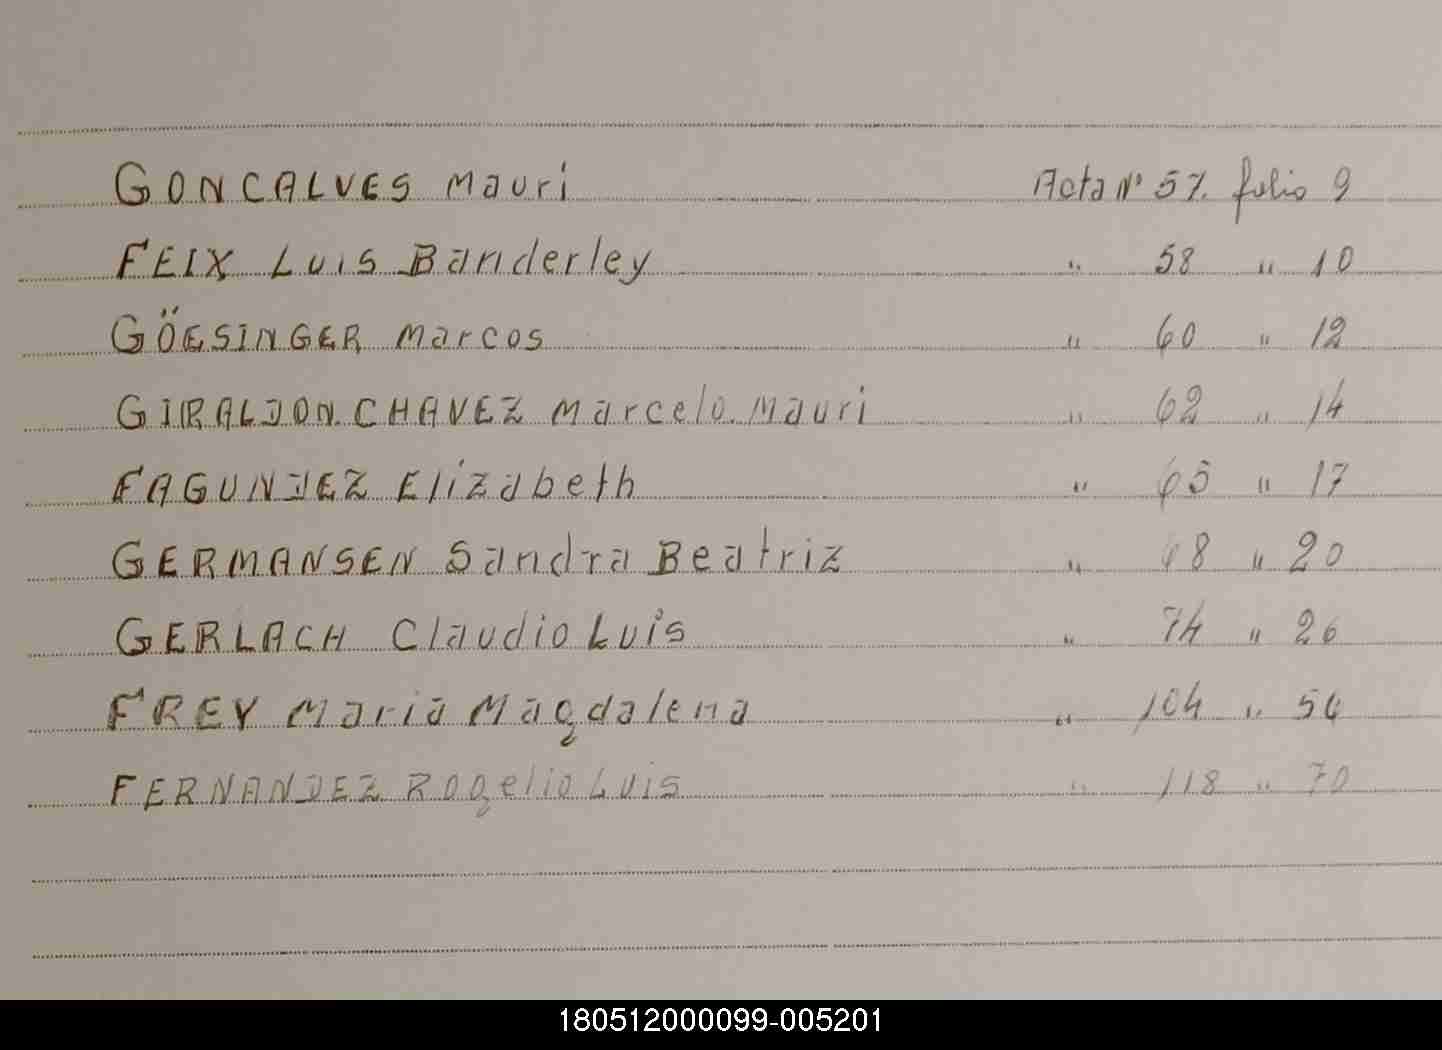 GONCALVES Mauri Acta Nº 57. folio 9
FEIX LUIS Banderley " 58 " 10
GÖESINGER Marcos " 60 " 12
GIRALDON CHAVEZ Marcelo Mauri " 62 " 14
FAGUNDEZ Elizabeth " 65 " 17
GERMANSEN Sandra Beatriz " 68 " 20
GERLACH Claudio Luis " 74 " 26
FREY Maria Magdalena " 104 " 56
FERNANDEZ Rogelio Luis " 118 " 70
180512000099-005201